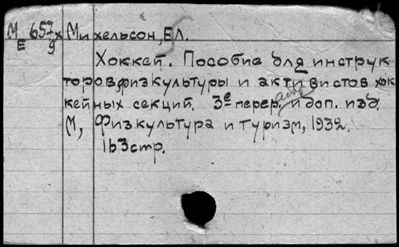 М 657 х Михельсон, ЕЛ.
Е 9
Хоккей. Пособие для инструк
торов физкультуры и активистов хок
кейных секций. 3е перер. и доп. изд
М, Физкультура и туризм, 1932.
163 стр.